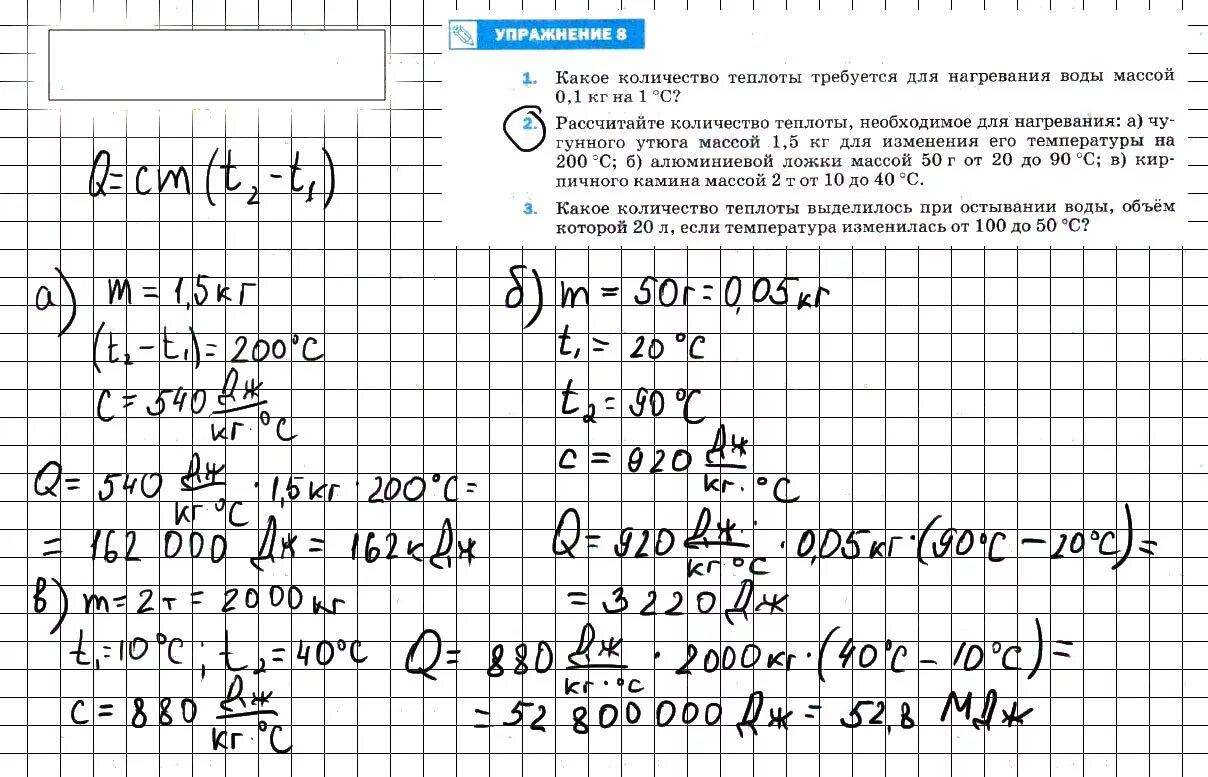 УПРАЖНЕНИЕ 8
1. Какое количество теплоты требуется для нагревания воды массой
0,1 кг на 1 °С?
2. Рассчитайте количество теплоты, необходимое для нагревания: а) чу-
гунного утюга массой 1,5 кг для изменения его температуры на
200 °С; б) алюминиевой ложки массой 50 г от 20 до 90 °С; в) кир-
пичного камина массой 2 т от 10 до 40 °С.
3. Какое количество теплоты выделилось при остывании воды, объём
которой 20 л, если температура изменилась от 100 до 50 °С?
Q = cm (t₂ - t₁)
а) m = 1,5 кг
(t₂ - t₁) = 200°C
c = 540 Дж/кг·°C
Q = 540 Дж/кг·°C · 1,5 кг · 200°C =
= 162 000 Дж = 162 кДж
б) m = 50г = 0,05 кг
t₁ = 20 °C
t₂ = 90°C
c = 920 Дж/кг·°C
Q = 920 Дж/кг·°C · 0,05 кг · (90°C - 20°C) =
= 3220 Дж
в) m = 2 т = 2000 кг
t₁ = 10°C ; t₂ = 40°C
c = 880 Дж/кг·°C
Q = 880 Дж/кг·°C · 2000 кг · (40°C - 10°C) =
= 52 800 000 Дж = 52,8 МДж